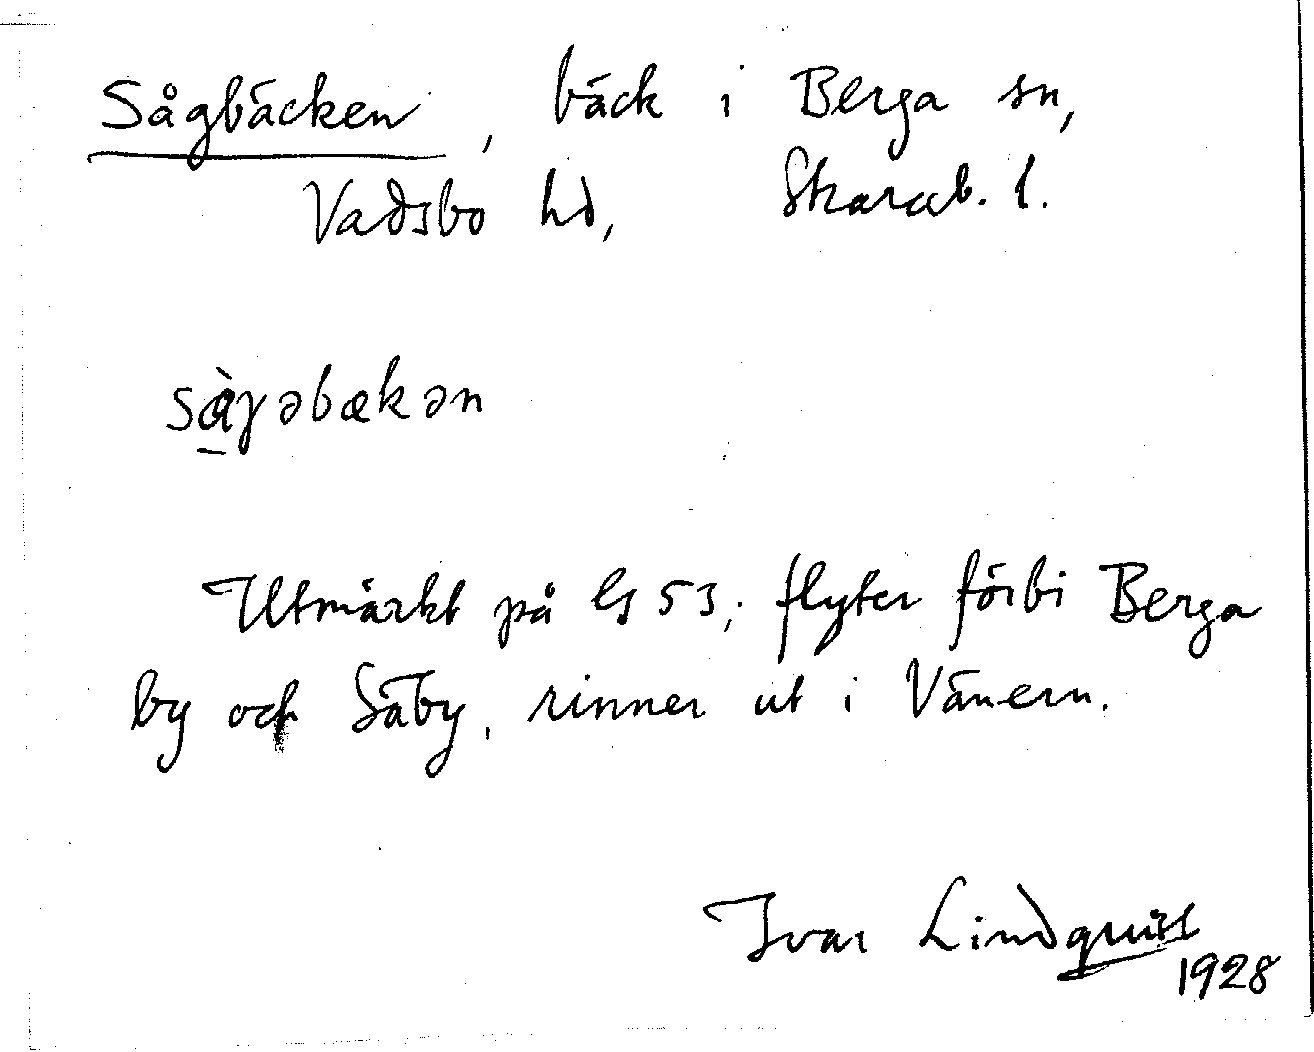 Sågbäcken, bäck i Berga sn,
Vadsbo hd, Skarab. l.
sàɣəbækən
Utmärkt på G 53; flyter förbi Berga
by och Säby, rinner ut i Vänern.
Ivar Lindquist
1928